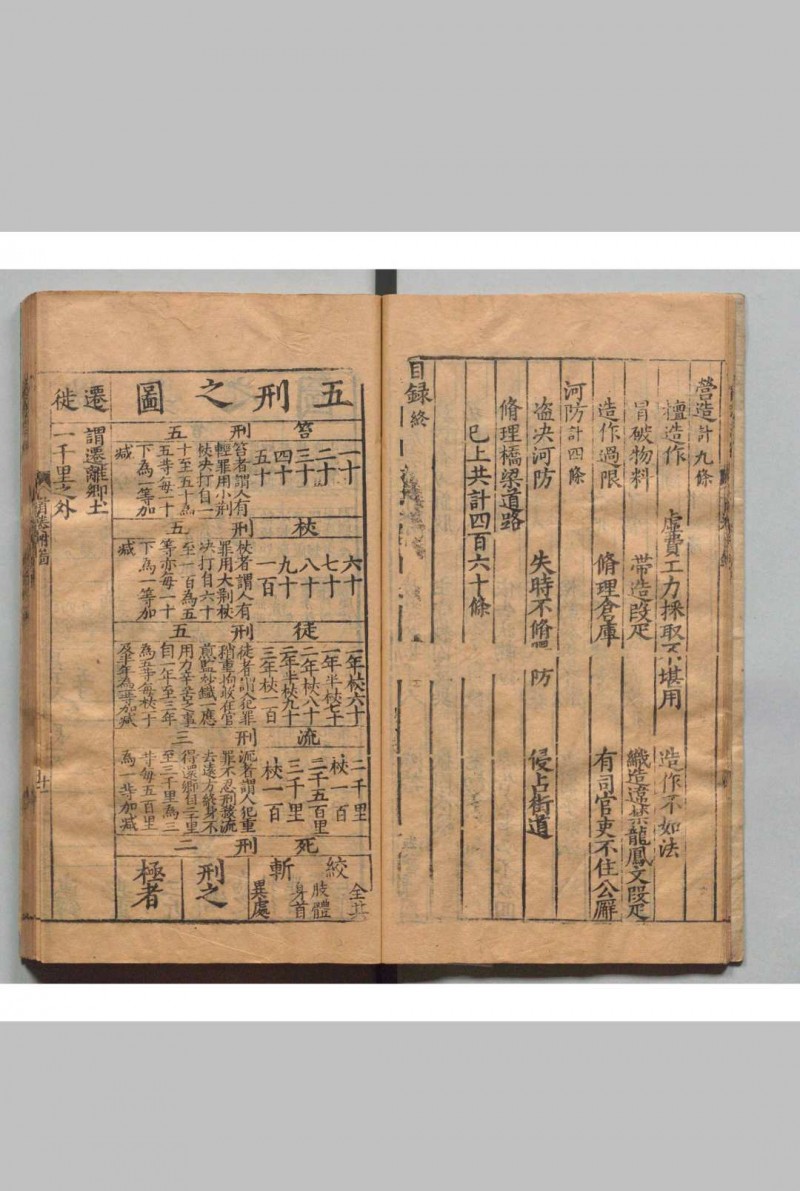 營造計九條
擅造作 虛費工力採取不堪用 造作不如法
冒破物料 帶造段疋 織造違禁龍鳳文段疋
造作過限 脩理倉庫 有司官吏不住公廨
河防計四條
盗决河防 失時不脩 防 侵占街道
脩理橋梁道路
已上共計四百六十條
目録終
五刑之圖
笞刑五
一十
二十
三十
四十
五十
笞者謂人有
輕罪用小荆
杖决打自一
十至五十為
五等每一十
下為一等加
減
杖刑五
六十
七十
八十
九十
一百
杖者謂人有
罪用大荆杖
决打自六十
至一百為五
等亦每一十
下為一等加
減
徒刑五
一年杖六十
一年半杖七十
二年杖八十
二年半杖九十
三年杖一百
徒者謂人犯罪
稍重拘收在官
煎鹽炒鐵一應
用力辛苦之事
自一年至三年
為五等每杖一十
及半年為一等加減
流刑三
二千里
杖一百
二千五百里
三千里
杖一百
流者謂人犯重
罪不忍刑殺流
去遠方終身不
得還鄉自二千里
至三千里為三
等每五百里
為一等加減
死刑二
絞 全其
肢體
斬 身首
異處
刑之
極者
遷徙
謂遷離鄉土
一千里之外